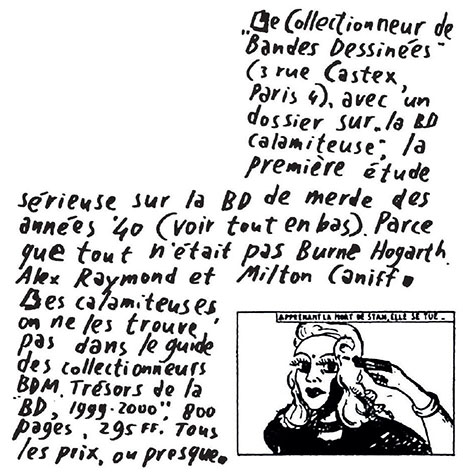 „Le Collectionneur de
Bandes Dessinées"
(3 rue Castex,
Paris 4), avec un
dossier sur „la BD
calamiteuse", la
première étude
sérieuse sur la BD de merde des
années '40 (voir tout en bas). Parce
que tout n'était pas Burne Hogarth,
Alex Raymond et Milton Caniff.
Les calamiteuses
on ne les trouve
pas dans le guide
des collectionneurs
BDM „Trésors de la
BD, 1999-2000", 800
pages, 295 FF. Tous
les prix, ou presque.
APPRENANT LA MORT DE STAN, ELLE SE TUE..